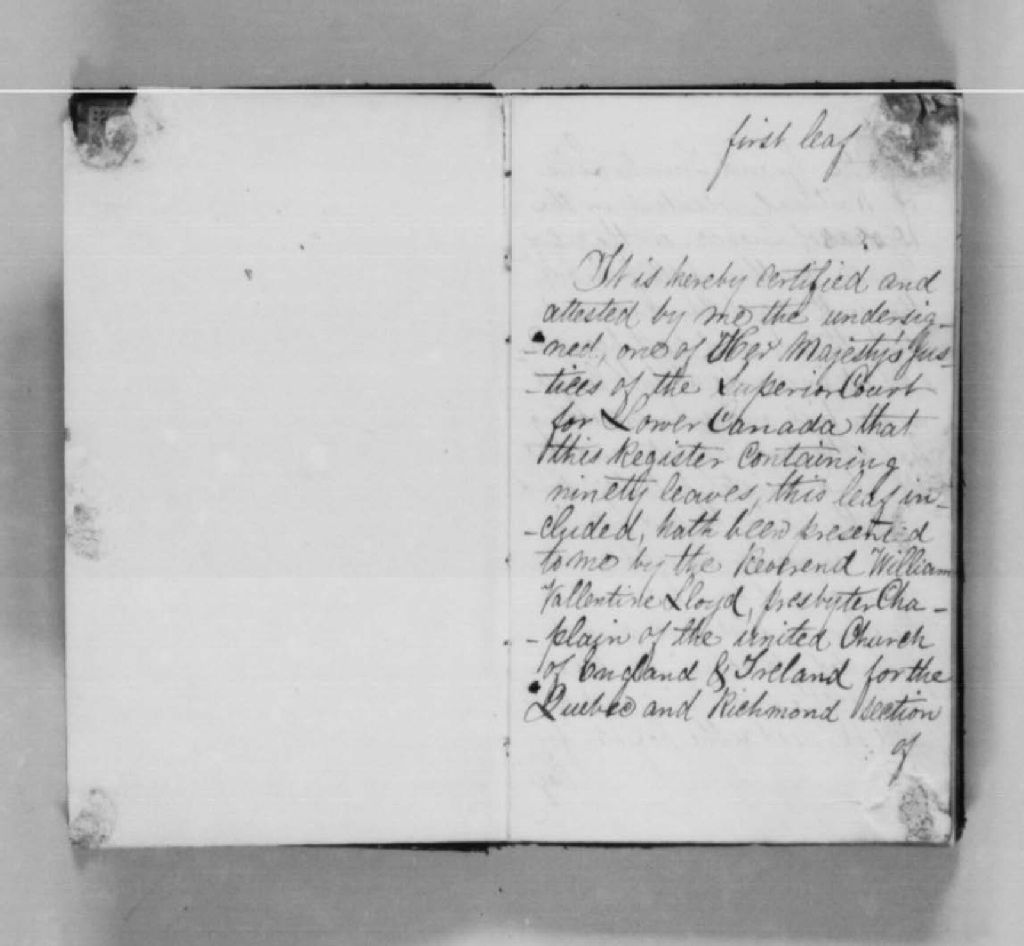 first leaf
It is hereby certified and
attested by me the undersig-
-ned, one of Her Majesty's Jus-
-tices of the Superior Court
for Lower Canada that
this Register containing
ninety leaves, this leaf in-
-cluded, hath been presented
to me by the Reverend William
Vallentine Lloyd, presbyter Cha-
-plain of the united Church
of England & Ireland for the
Quebec and Richmond section
of